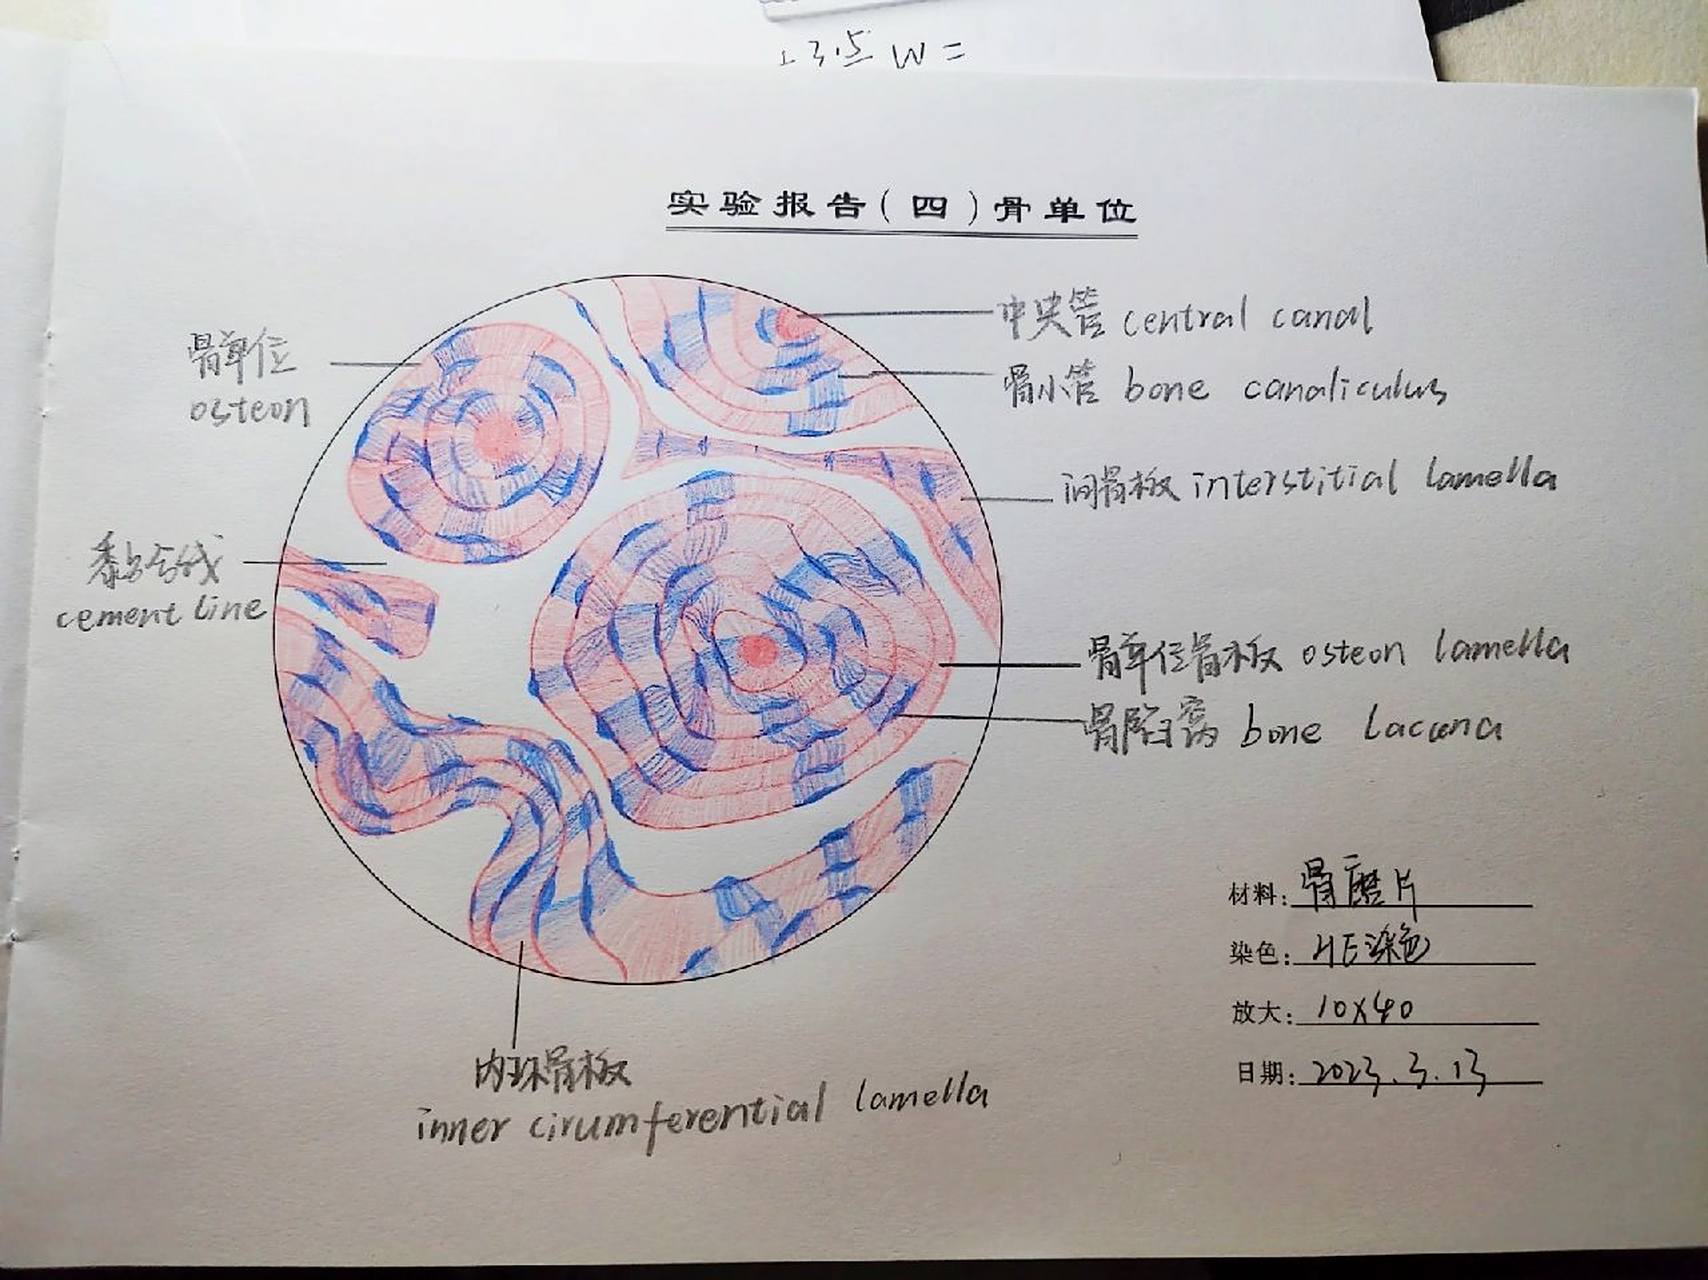 W =
实验报告(四)骨单位
骨单位
osteon
黏合线
cement line
中央管 central canal
骨小管 bone canaliculus
间骨板 interstitial lamella
骨单位骨板 osteon lamella
骨陷窝 bone lacuna
内环骨板
inner cirumferential lamella
材料: 骨磨片
染色: HE染色
放大: 10X40
日期: 2023.3.13